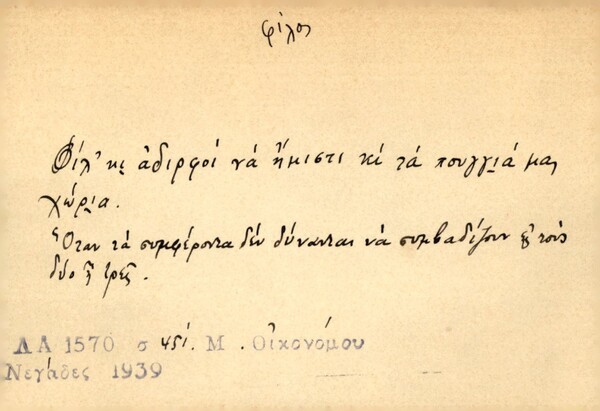 φίλος
Φίλ' κι ἀδιρφοί νά ἤμιστι κί τά πουγγιά μας
χώρια.
Ὅταν τά συμφέροντα δέν δύνανται νά συμβαδίζουν τούς
δύο ἤ τρεῖς.
ΛΑ 1570 σ 451. Μ. Οἰκονόμου
Νεγάδες 1939